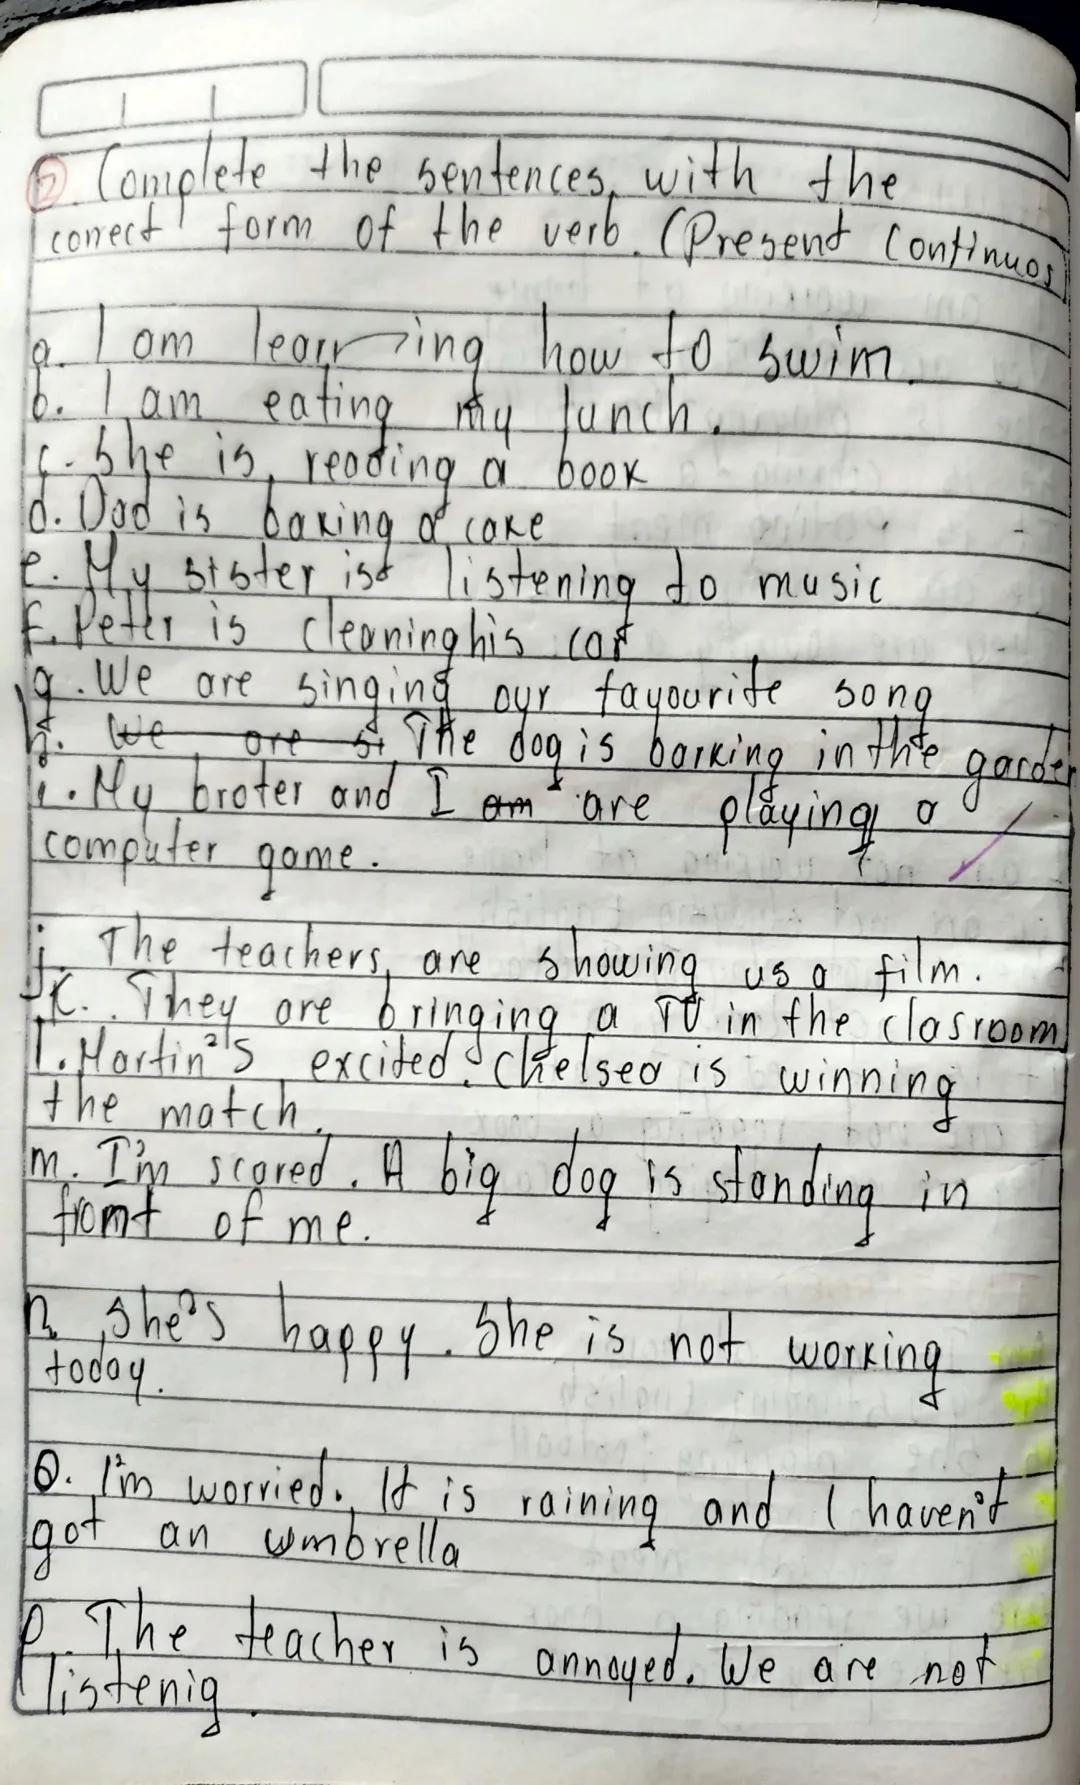 2. Complete the sentences, with the
correct form of the verb. (Present Continuos)
a. I am learning how to swim.
b. I am eating my lunch.
c. She is reading a book
d. Dad is baking a cake
e. My sister is listening to music
f. Peter is cleaning his car
g. We are singing our favourite song
h. We are si The dog is barking in the garden
i. My broter and I am are playing a
computer game.
j. The teachers are showing us a film.
k. They are bringing a TV in the clasroom
l. Martin's excited. Chelsea is winning
the match.
m. I'm scared. A big dog is standing in
fromt of me.
n. She's happy. She is not working
today.
O. I'm worried. It is raining and I haven't
got an umbrella
P. The teacher is annoyed. We are not
listenig.